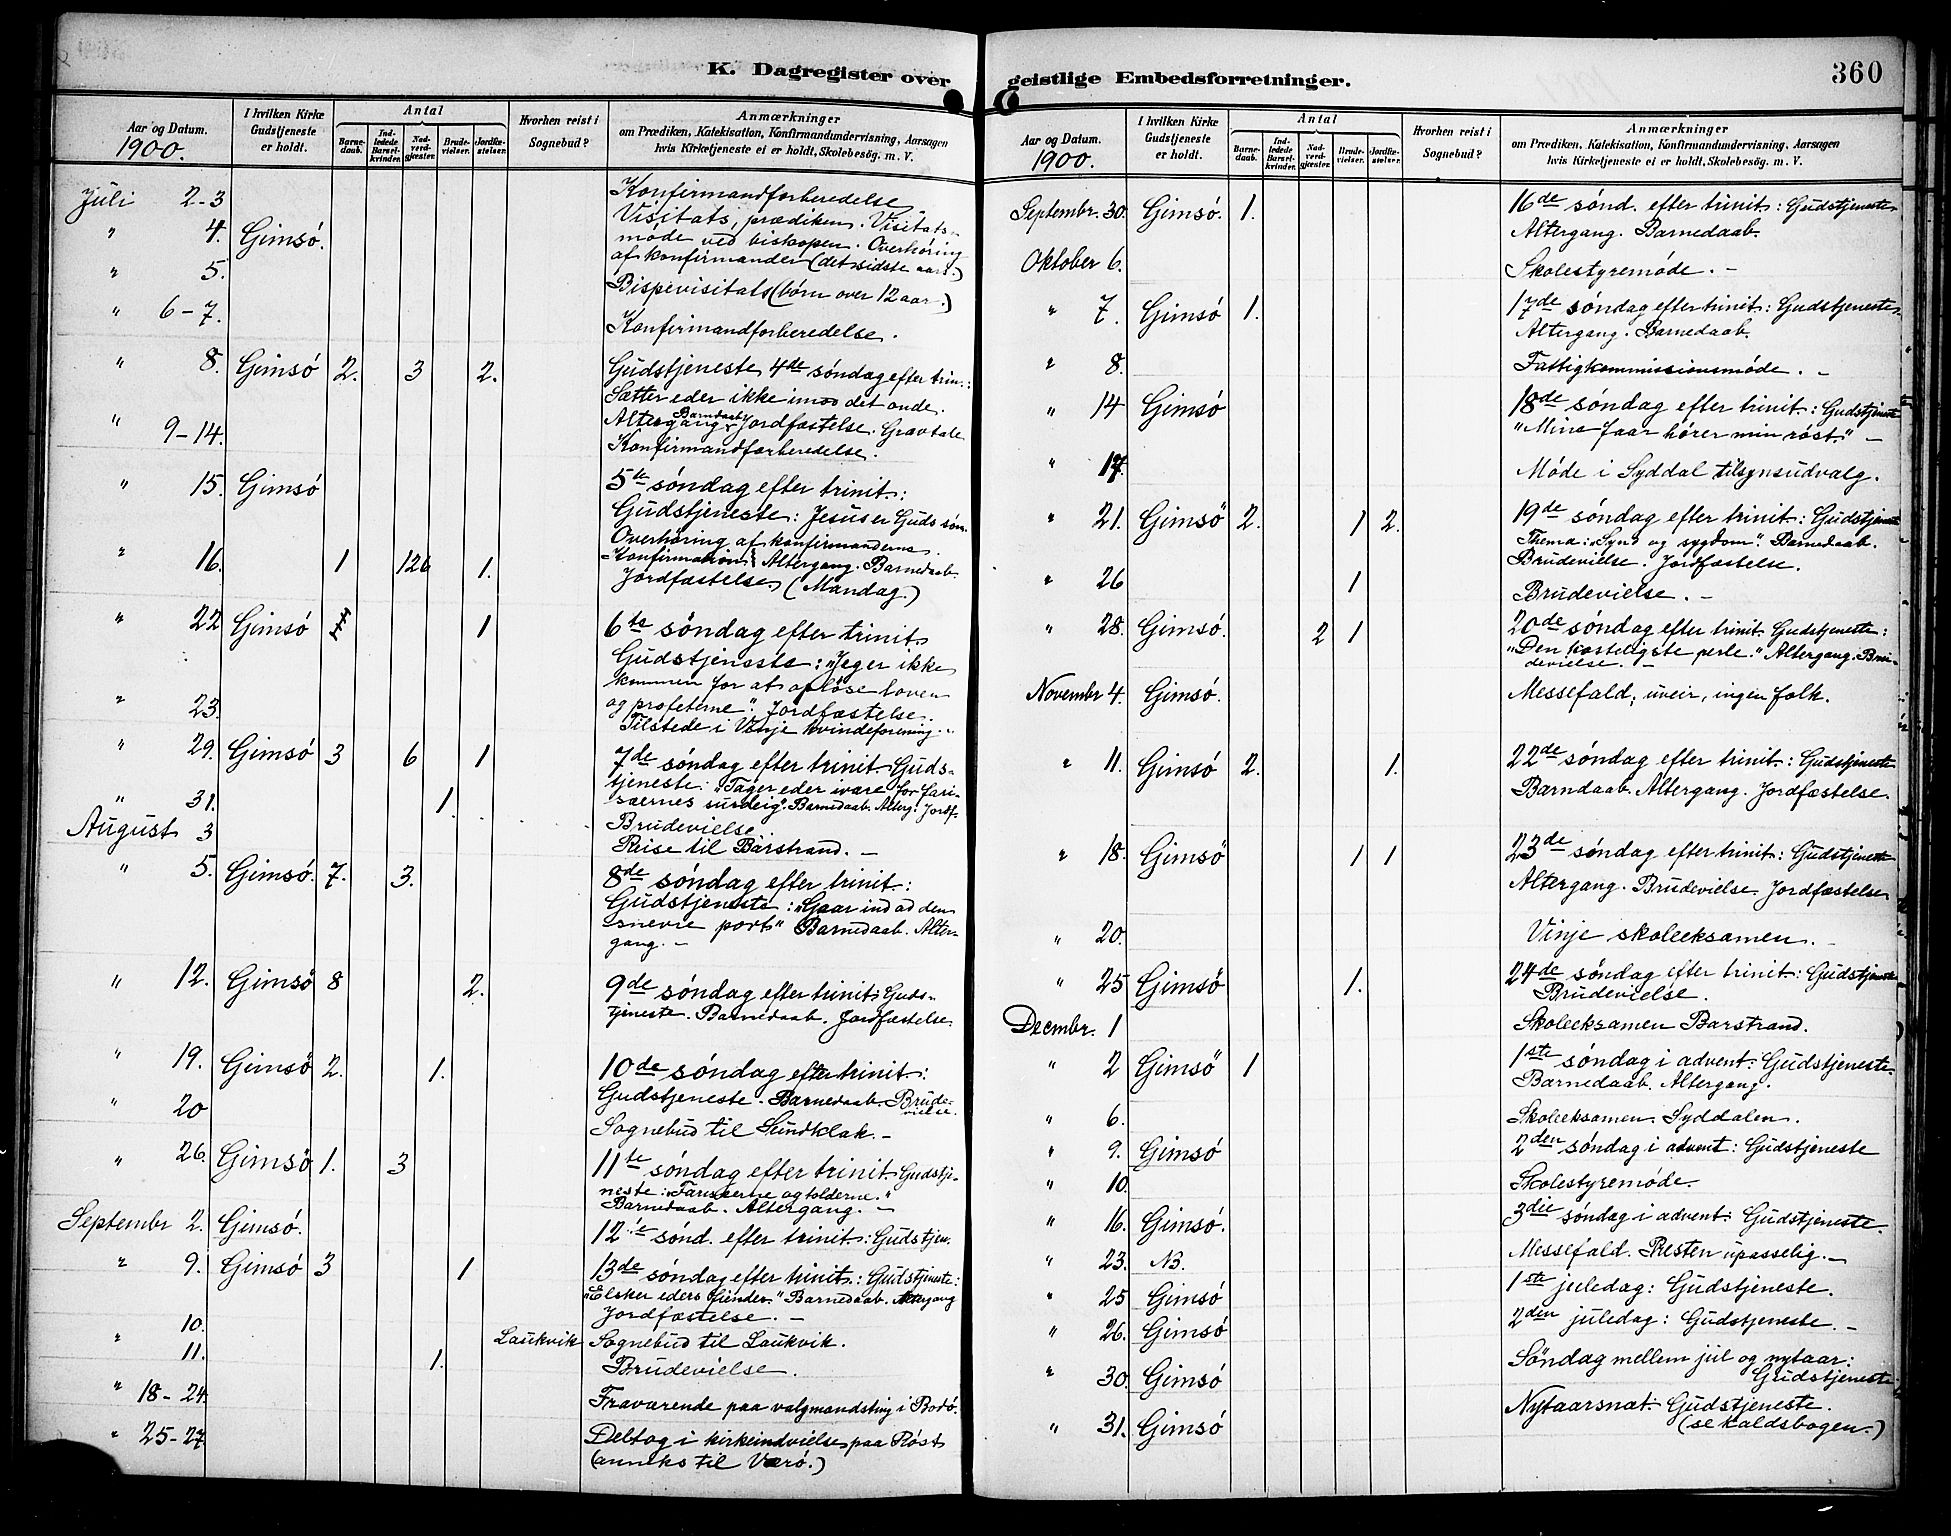 K. Dagregister over
Aar og Datum.
1900.
I hvilken Kirke Gudstjeneste er holdt.
Antal
Barnedaab.
Indledede Barselkvinder.
Nadverdgjester.
Brudevielser.
Jordfæstelser.
Hvorhen reist i Sognebud?
Anmærkninger
om Prædiken, Katekisation, Konfirmandundervisning, Aarsagen
hvis Kirketjeneste ei er holdt, Skolebesøg. m. V.
Juli 2-3 Konfirmandforberedelse
" 4. Gimsó. Visitats, prædiken. Visitats-
møde ved biskopen. Overhøring
af konfirmander (det sidste aars.)
" 5. Bispevisitats (børn over 12 aar.)
" 6-7. Konfirmandforberedelse.
" 8. Gimsó 2. 3 2. Gudstjeneste 4de søndag efter trin.:
Sætter eder ikke imod det onde.
Altergang. Barnedaab Jordfæstelse. Gravtale
" 9-14. Konfirmandforberedelse.
" 15. Gimsó 5te søndag efter trinit:
Gudstjeneste: Jesus er Guds søn.
Overhøring af konfirmanderne.
" 16. 1 126 1. Konfirmation. Altergang. Barnedaab.
Jordfæstelse. (Mandag.)
" 22 Gimsó 1 6te søndag efter trinit
Gudstjeneste: "Jeg er ikke
kommen for at opløse loven
og profeterne". Jordfæstelse.
" 23. Tilstede i Vinje kvindeforening.
" 29. Gimsó 3 6 1 7de søndag efter trinit. Guds-
tjeneste: "Tager eder ivare for fari-
sæernes surdeig". Barnedaab. Alterg. Jordf.
" 31. 1. Brudevielse.
August 3 Reise til Barstrand. -
" 5. Gimsó. 7. 3. 8de søndag efter trinit:
Gudstjeneste: "Gaar ind ad den
snevre port" Barnedaab. Alter-
gang. -
" 12. Gimsó 8 2. 9de søndag efter trinit: Guds-
tjeneste. Barnedaab. Jordfæstelse.
" 19. Gimsó 2. 1. 10de søndag efter trinit:
Gudstjeneste. Barnedaab. Brude-
vielse.
" 20 Sognebud til Sundklak. -
" 26. Gimsó 1. 3 11te søndag efter trinit. Gudstje-
neste: "Farisæerne og tolderne."
Barnedaab. Altergang. -
Septembr 2. Gimsó. 12te sønd. efter trinit.: Gudstjen.
" 9. Gimsó 3 1 13de søndag efter trinit.: Gudstjeneste:
"Elsker eders fiender." Barnedaab. Altergang
Jordfæstelse. -
" 10. Laukvik Sognebud til Laukvik.
" 11. 1. Brudevielse.
" 18-24. Fraværende paa valgmandsting i Bodø.
" 25-27 Deltog i kirkeindvielse paa Røst
(anneks til Værø.)
geistlige Embedsforretninger.
360
Aar og Datum.
1900.
I hvilken Kirke Gudstjeneste er holdt.
Antal
Barnedaab.
Indledede Barselkvinder.
Nadverdgjester.
Brudevielser.
Jordfæstelser.
Hvorhen reist i Sognebud?
Anmærkninger
om Prædiken, Katekisation, Konfirmandundervisning, Aarsagen
hvis Kirketjeneste ei er holdt, Skolebesøg. m. V.
Septembr. 30. Gimsó. 1. 16de sønd. efter trinit.: Gudstjeneste
Altergang. Barnedaab.
Oktober 6. Skolestyremøde. -
" 7. Gimsó 1. 17de søndag efter trinit: Gudstjeneste.
Altergang. Barnedaab.
" 8. Fattigkommissionsmøde. -
" 14 Gimsó 18de søndag efter trinit: Gudstjeneste
"Mine faar hører min røst." -
" 17. Møde i Syddal tilsynsudvalg.
" 21. Gimsó 2. 1 2. 19de søndag efter trinit: Gudstjeneste
Thema: "Synd og sygdom". Barnedaab.
Brudevielse. Jordfæstelse.
" 26 1 Brudevielse. -
" 28. Gimsó. 2 1 20de søndag efter trinit. Gudstjeneste:
"Den kosteligste perle." Altergang. Bru-
devielse. -
Novembr 4. Gimsó. Messefald; uveir, ingen folk.
" 11. Gimsó 2. 1. 22de søndag efter trinit: Gudstjeneste
Barndaab. Altergang. Jordfæstelse.
" 18. Gimsó 1 1 23de søndag efter trinit: Gudstjeneste
Altergang. Brudevielse. Jordfæstelse
" 20. Vinje skoleeksamen. -
" 25 Gimsó 1. 24de søndag efter trinit: Gudstjeneste
Brudevielse.
Decmbr. 1 Skoleeksamen Barstrand.
" 2 Gimsó 1 1ste søndag i advent: Gudstjeneste.
Barnedaab. Altergang.
" 6. Skoleeksamen. Syddalen.
" 9. Gimsó 2den søndag i advent: Gudstjeneste
" 10. Skolestyremøde.
" 16. Gimsó. 3die søndag i advent: Gudstjeneste.
" 23. N3. Messefald. Presten upasselig. -
" 25 Gimsó 1ste juledag: Gudstjeneste.
" 26. Gimsó 2den juledag: Gudstjeneste. -
" 30. Gimsó Søndag mellem jul og nytaar:
Gudstjeneste
" 31. Gimsó Nytaarsnat: Gudstjeneste.
(se kaldsbogen.)